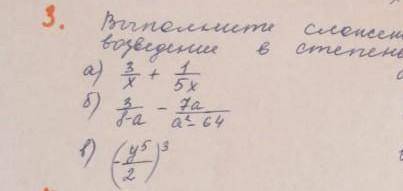 3. Выполните
возведение в степень
а) 3/x + 1/5x
б) 3/8-a - 7a/a²-64
в) (-y⁵/2)³